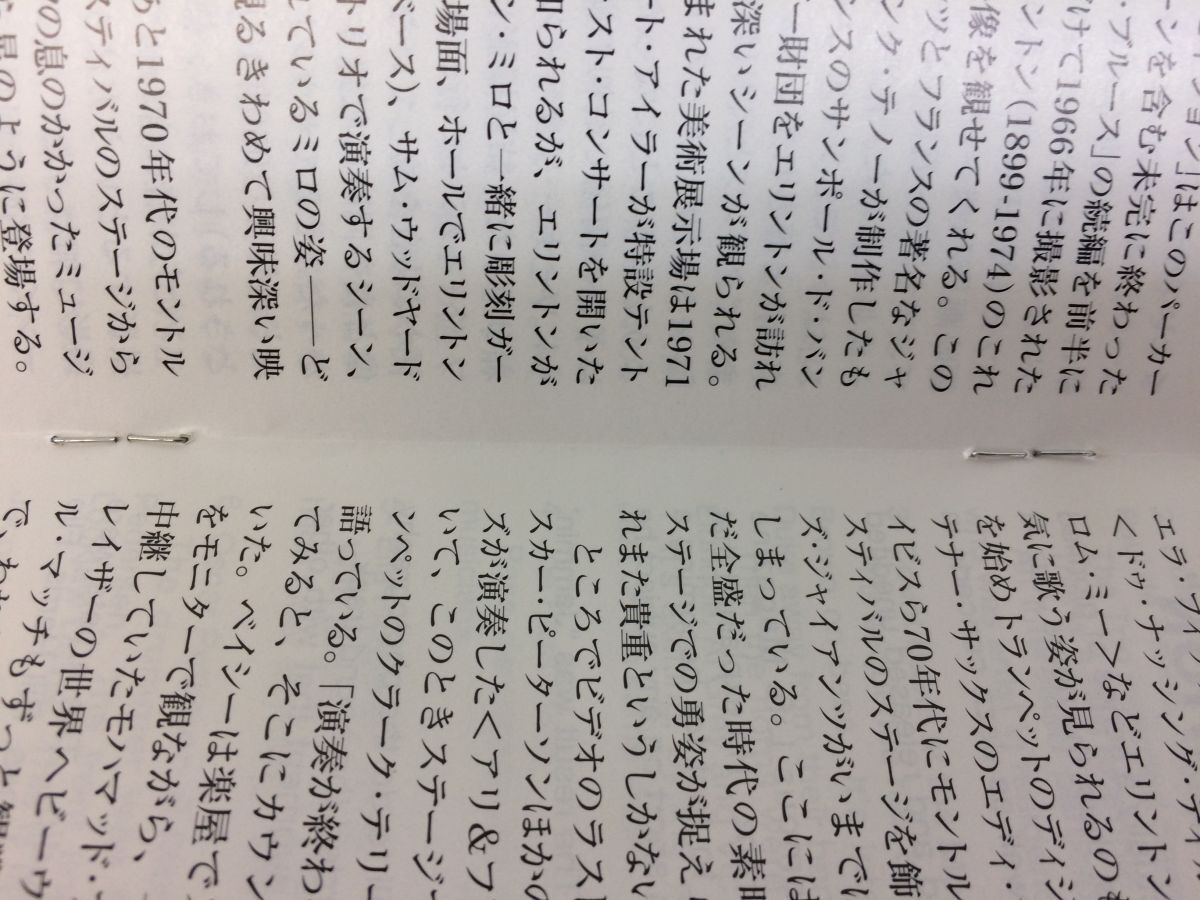 ョン」はこのパーカー
ーンを含む未完に終わった
・ブルース」の続編を前半に
けて1966年に撮影された
ントン(1899-1974)のこれ
像を観せてくれる。この
ッとフランスの著名なジャ
ンク・テノーが制作したも
ンスのサンポール・ド・バン
ー財団をエリントンが訪れ
深いシーンが観られる。
まれた美術展示場は1971
ート・アイラーが特設テント
スト・コンサートを開いた
知られるが、エリントンが
ン・ミロと一緒に彫刻ガー
場面、ホールでエリントン
ベース)、サム・ウッドヤード
トリオで演奏するシーン、
ているミロの姿——ど
見るきわめて興味深い映
あと1970年代のモントル
スティバルのステージから
の息のかかったミュージ
星のように登場する。
エラ・フィ
<ドゥ・ナッシング・ティ
ロム・ミー>などエリントン
気に歌う姿が見られるのも
を始めトランペットのディジ
テナー・サックスのエディ・
イビスら70年代にモントル
スティバルのステージを飾
ズ・ジャイアンツがいまでは
しまっている。ここには
だ全盛だった時代の素晴
ステージでの勇姿が捉え
れまた貴重というしかない
ところでビデオのラスト
スカー・ピーターソンほかの
ズが演奏した<アリ&フ
いて、このときステージ
ンペットのクラーク・テリー
語っている。「演奏が終わ
てみると、そこにカウン
いた。ベイシーは楽屋で
をモニターで観ながら、
中継していたモハマッド・
レイザーの世界ヘビーウ
ル・マッチもずっと観